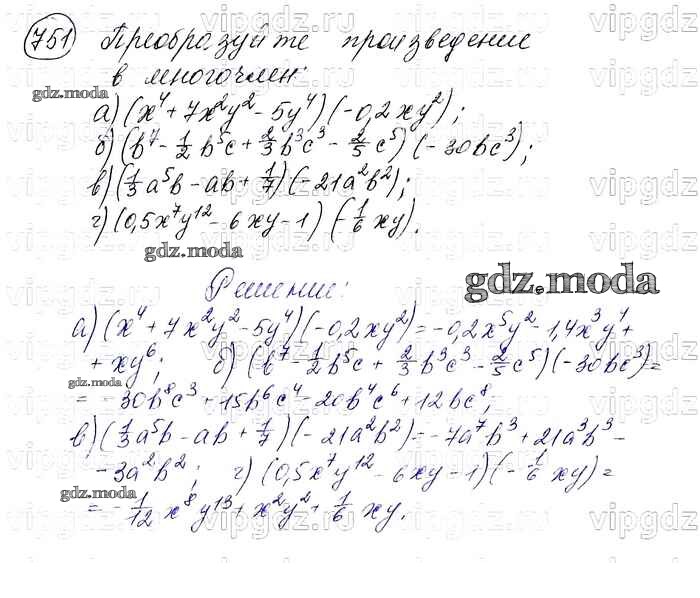 751 Преобразуйте произведение
в многочлен:
gdz.moda
а) (x⁴ + 7x²y² - 5y⁴)(-0,2xy²);
б) (b⁷ - 1/2 b⁵c + 2/3 b³c³ - 2/5 c⁵)(-30bc³);
в) (1/3 a⁵b - ab + 1/7)(-21a²b²);
г) (0,5x⁷y¹² - 6xy - 1)(-1/6 xy).
gdz.moda
Решение:
gdz.moda
а) (x⁴ + 7x²y² - 5y⁴)(-0,2xy²) = -0,2x⁵y² - 1,4x³y⁴ +
+ xy⁶; б) (b⁷ - 1/2 b⁵c + 2/3 b³c³ - 2/5 c⁵)(-30bc³) =
gdz.moda
= -30b⁸c³ + 15b⁶c⁴ - 20b⁴c⁶ + 12bc⁸;
в) (1/3 a⁵b - ab + 1/7)(-21a²b²) = -7a⁷b³ + 21a³b³ -
- 3a²b²; г) (0,5x⁷y¹² - 6xy - 1)(-1/6 xy) =
gdz.moda
= -1/12 x⁸y¹³ + x²y² + 1/6 xy.
vipgdz.ru